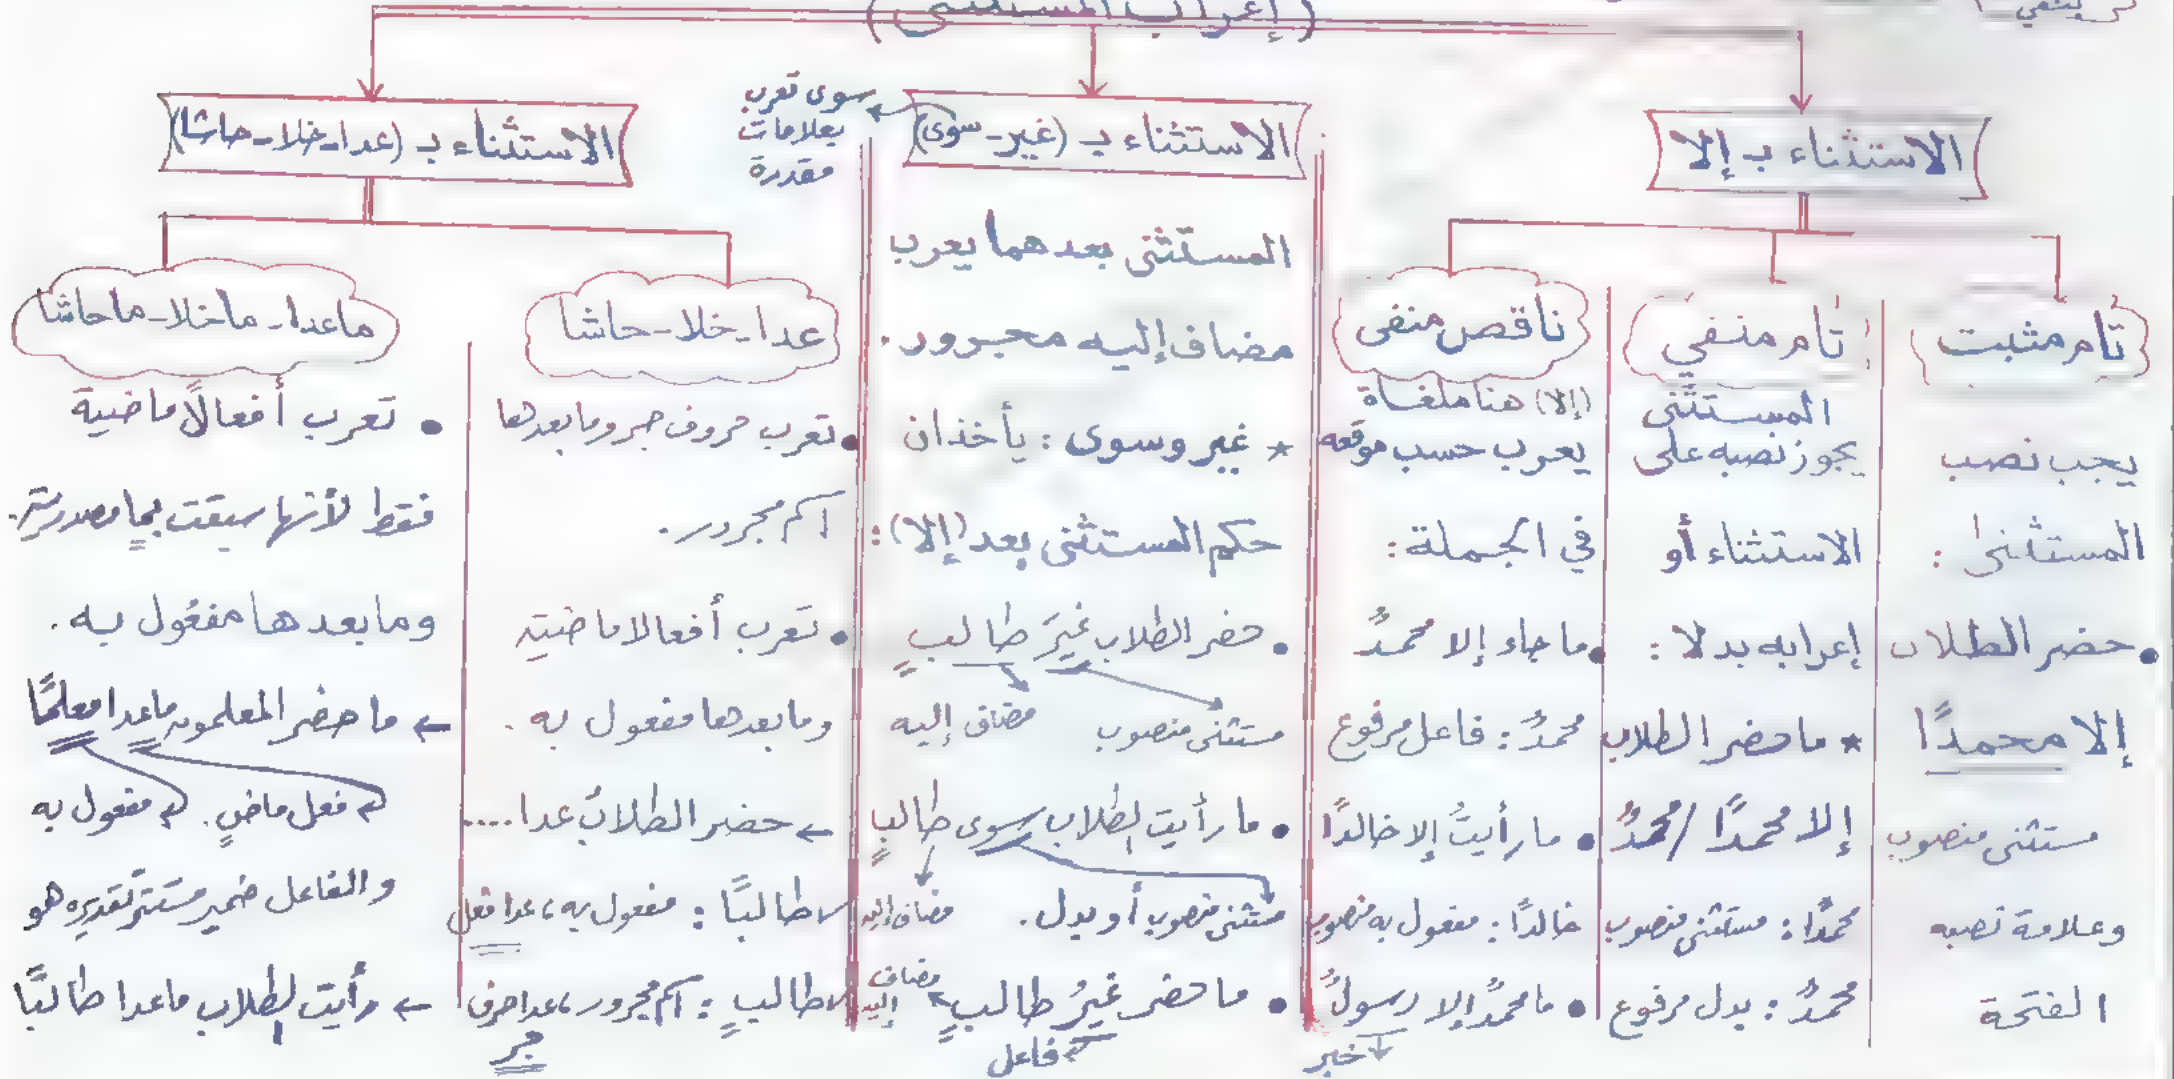 (إعراب المستثنى)
الاستثناء بـ إلا
تام مثبت
يجب نصب
المستثنى :
• حضر الطلاب
إلا محمدًا
مستثنى منصوب
وعلامة نصبه
الفتحة
تام منفي
المستثنى
يجوز نصبه على
الاستثناء أو
إعرابه بدلا :
* ما حضر الطلاب
إلا محمدًا / محمدٌ
محمدًا : مستثنى منصوب
محمدٌ : بدل مرفوع
ناقص منفي
(إلا) هنا ملغاة
يعرب حسب موقعه
في الجملة :
• ما جاء إلا محمدٌ
محمدٌ : فاعل مرفوع
• ما رأيتُ إلا خالدًا
خالدًا : مفعول به منصوب
• ما محمدٌ إلا رسولٌ
خبر
الاستثناء بـ (غير - سوى)
سوى تعرب
بعلامات
مقدرة
المستثنى بعدهما يعرب
مضاف إليه مجرور .
* غير وسوى : يأخذان
حكم المستثنى بعد (إلا) :
• حضر الطلاب غيرَ طالبٍ
مستثنى منصوب مضاف إليه
• ما رأيت الطلاب سوى طالبٍ
مستثنى منصوب أو بدل . مضاف إليه
• ما حضر غيرُ طالبٍ مضاف إليه
فاعل
الاستثناء بـ (عدا - خلا - حاشا)
عدا - خلا - حاشا
• تعرب حروف جر وما بعدها
اسم مجرور .
• تعرب أفعالا ماضية
وما بعدها مفعول به .
← حضر الطلابُ عدا ....
طالبًا : مفعول به ، عدا فعل
طالبٍ : اسم مجرور ، عدا حرف
جر
ما عدا - ما خلا - ما حاشا
• تعرب أفعالًا ماضية
فقط لأنها سبقت بما مصدرية .
وما بعدها مفعول به .
← ما حضر المعلمون ما عدا معلمًا
فعل ماضٍ . مفعول به
والفاعل ضمير مستتر تقديره هو
← رأيت الطلاب ما عدا طالبًا